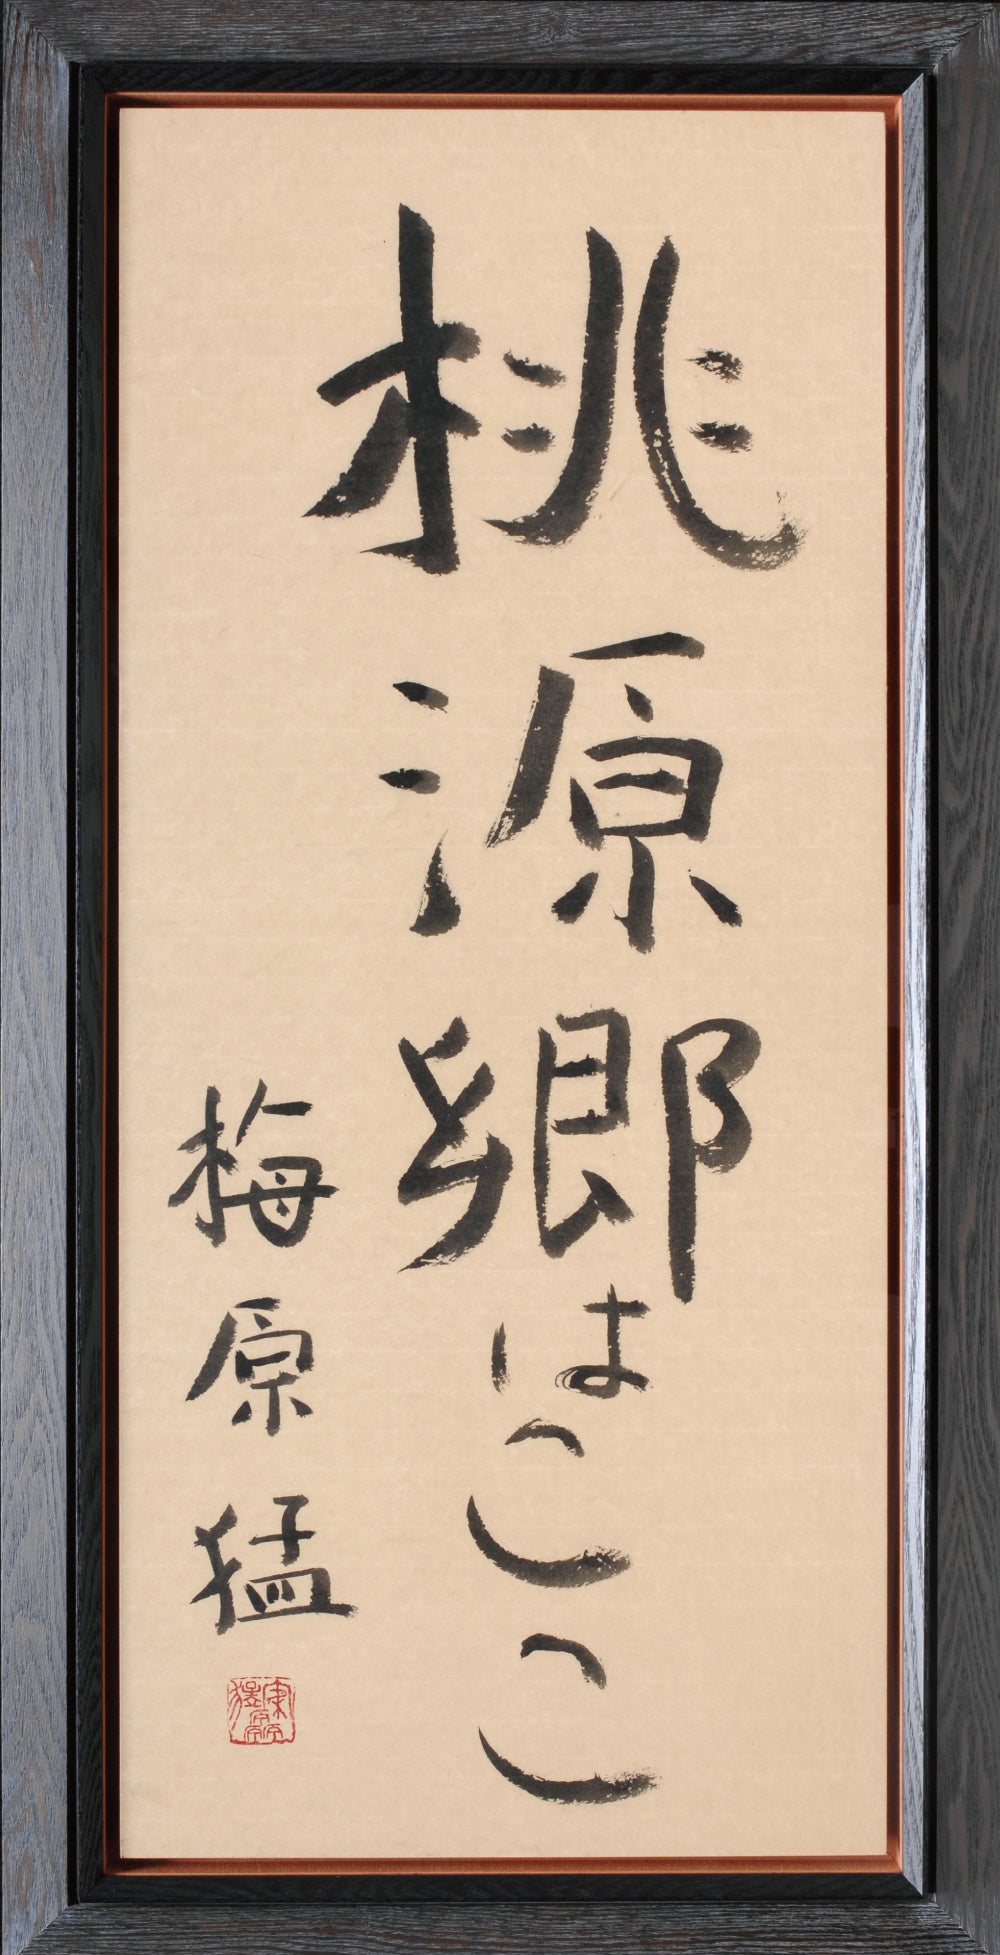 桃源郷はここ
梅原猛